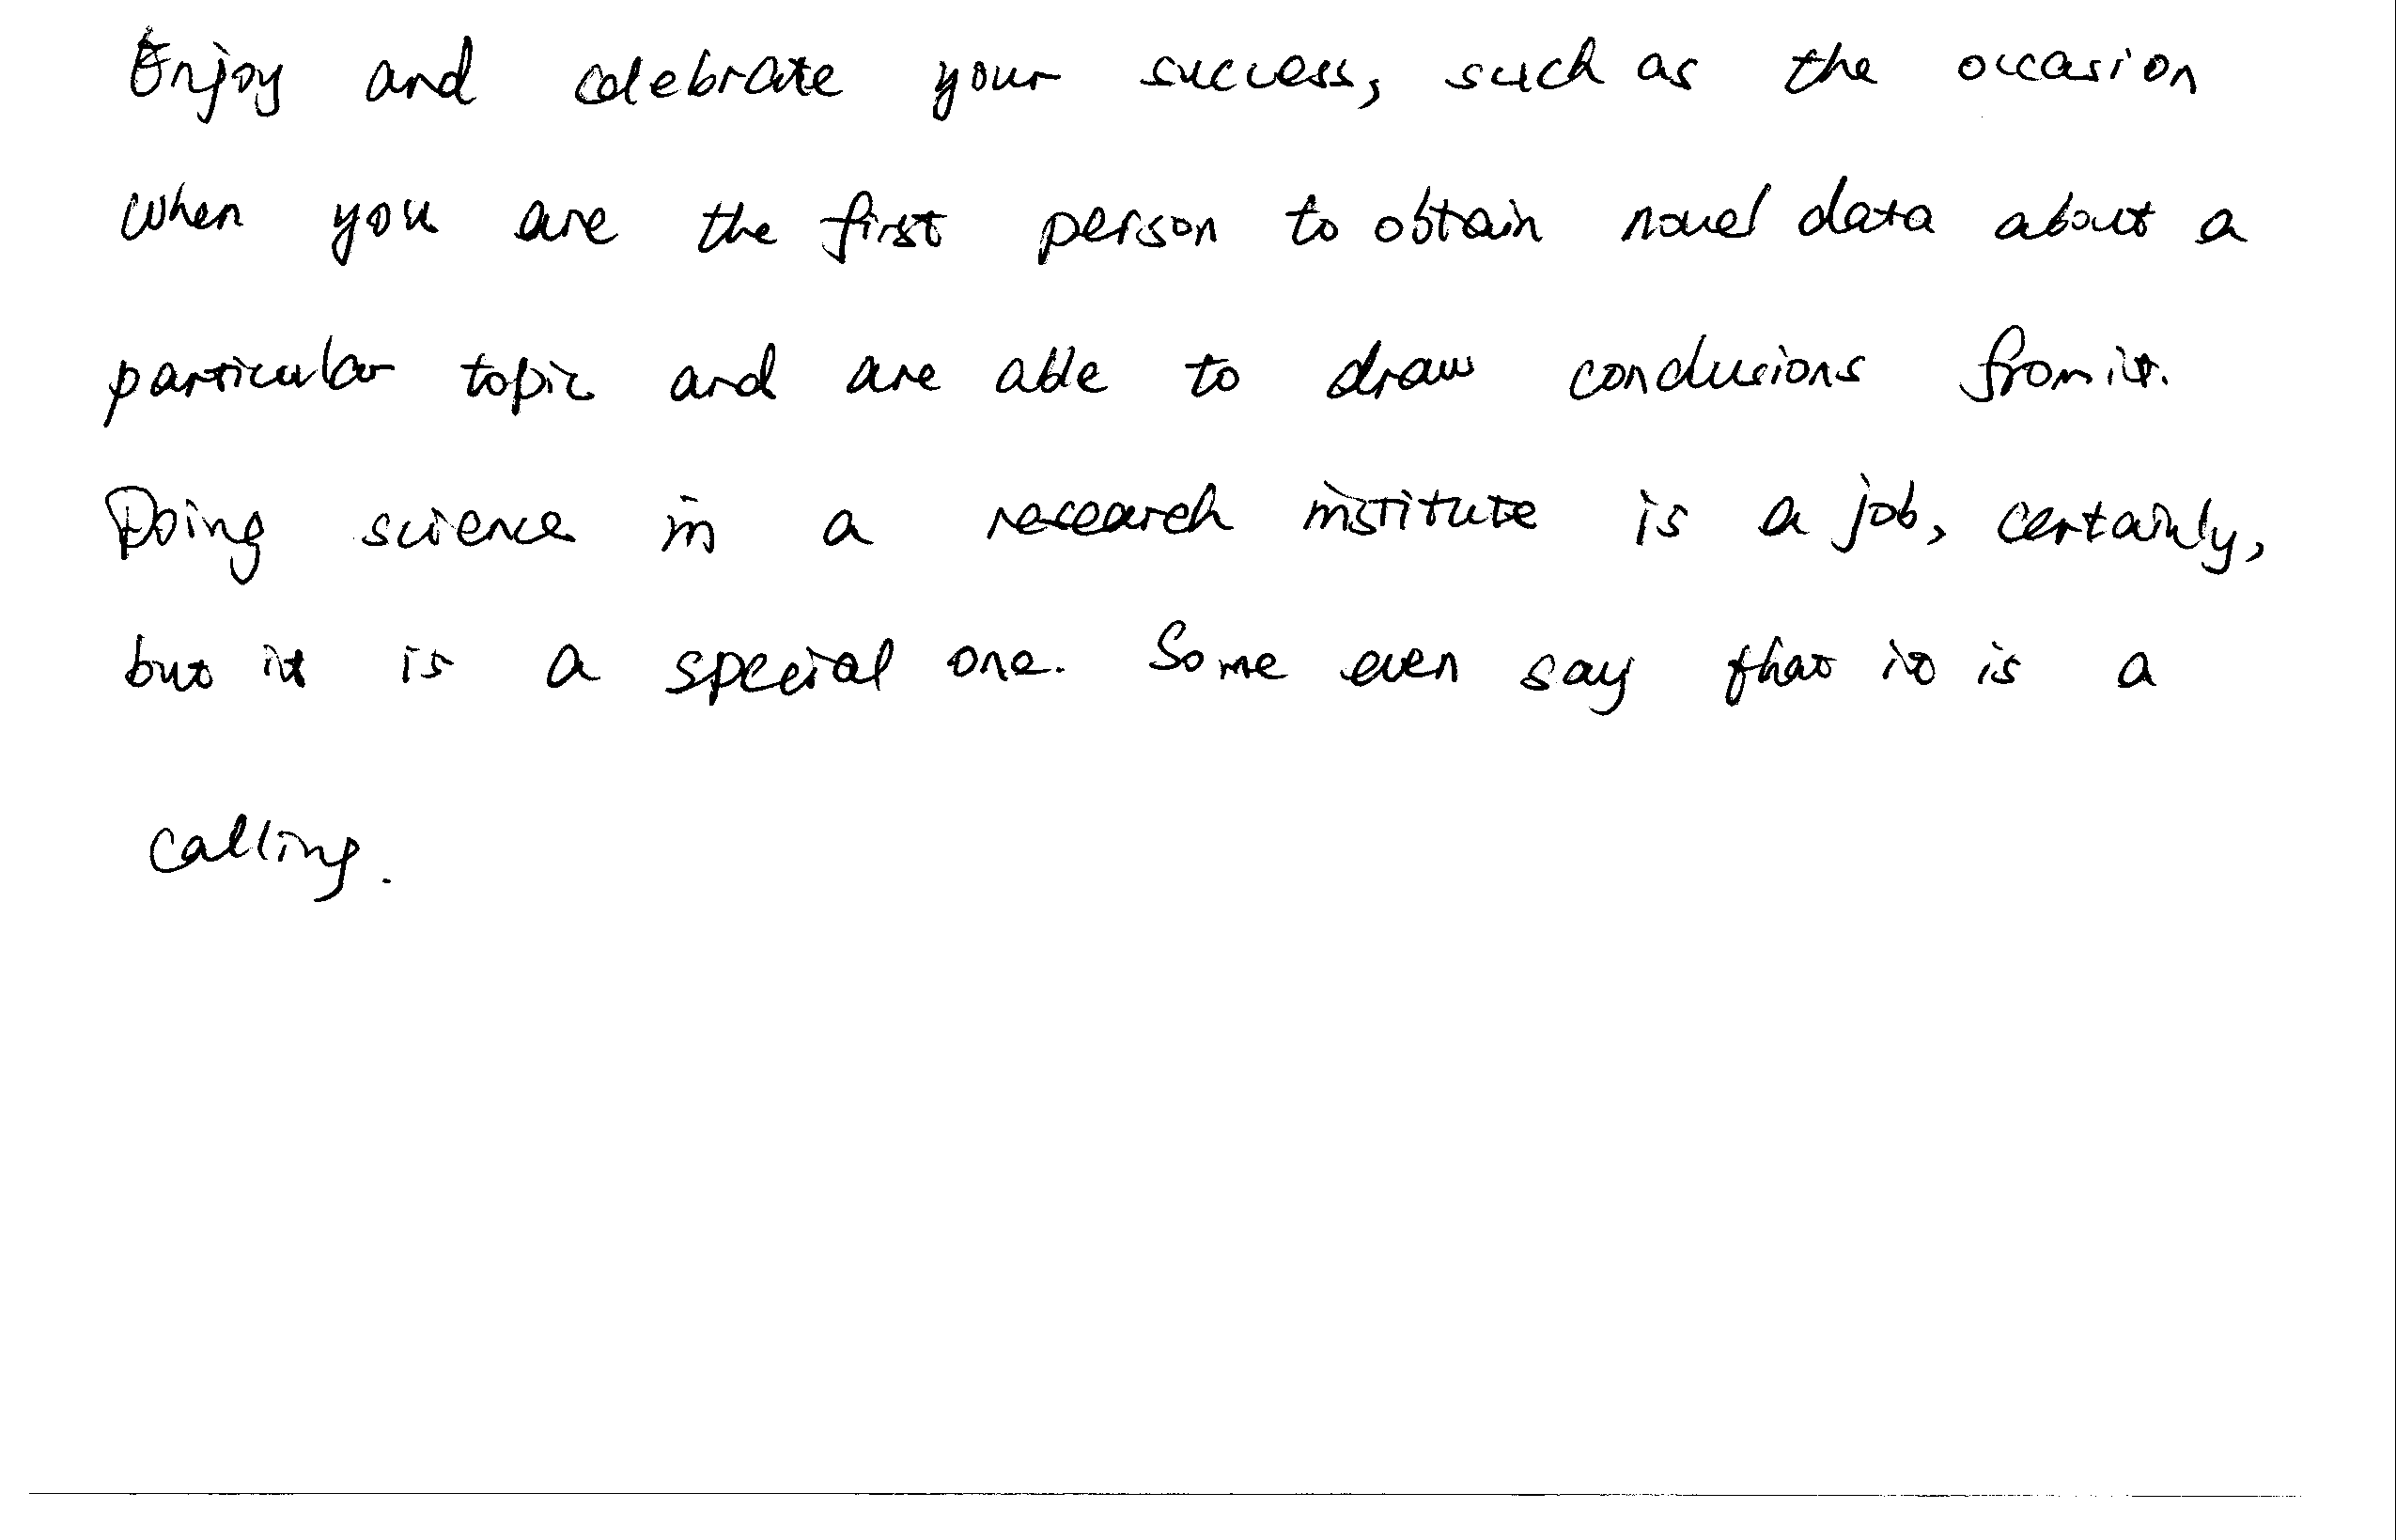 Enjoy and celebrate your success, such as the occasion
when you are the first person to obtain novel data about a
particular topic and are able to draw conclusions from it.
Doing science in a research institute is a job, certainly,
but it is a special one. Some even say that it is a
calling.